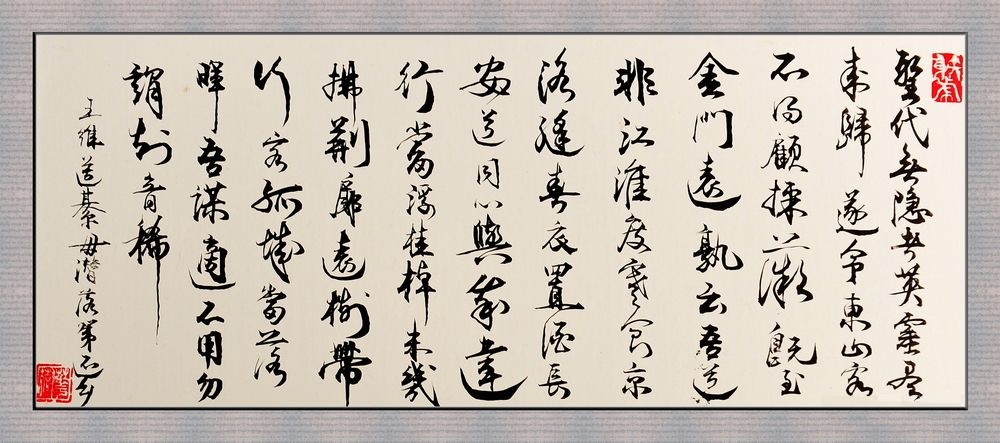 聖代無隱者英靈盡
來歸遂令東山客
不得顧採薇既至
金門遠孰云吾道
非江淮度寒食京
洛縫春衣置酒長
安道同心與我違
行當浮桂棹未幾
拂荊扉遠樹帶
行客孤城當落
暉吾謀適不用勿
謂知音稀
王維送綦毋潛落第還鄉